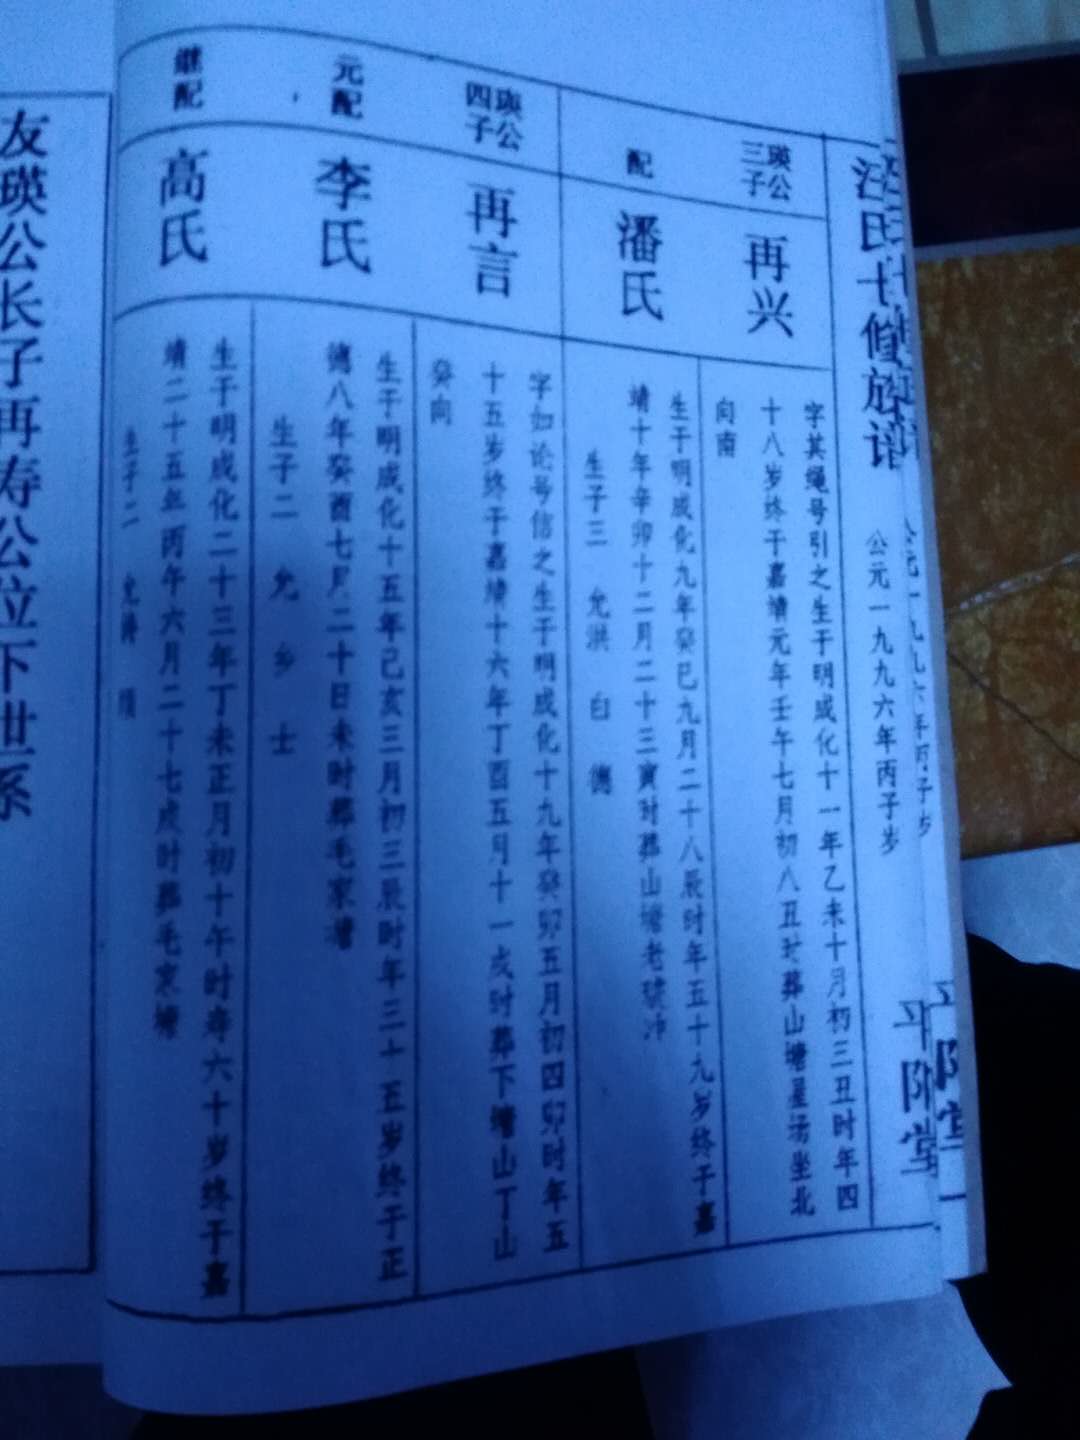 汪氏十修族谱
公元一九九六年丙子岁
平阳堂
瑛公
三子
再兴
字其绳号引之生于明成化十一年乙未十月初三丑时年四
十八岁终于嘉靖元年壬午七月初八丑时葬山塘屋场坐北
向南
配
潘氏
生于明成化九年癸巳九月二十八辰时年五十九岁终于嘉
靖十年辛卯十二月二十三寅时葬山塘老 冲
生子三 允洪 白 德
瑛公
四子
再言
字如论号信之生于明成化十九年癸卯五月初四卯时年五
十五岁终于嘉靖十六年丁酉五月十一戌时葬下塘山丁山
癸向
元配
李氏
生于明成化十五年己亥三月初三辰时年三十五岁终于正
德八年癸酉七月二十日未时葬毛家塘
生子二 允 乡 士
继配
高氏
生于明成化二十三年丁未正月初十午时寿六十岁终于嘉
靖二十五年丙午六月二十七戌时葬毛家塘
生子二 允
友瑛公长子再寿公位下世系